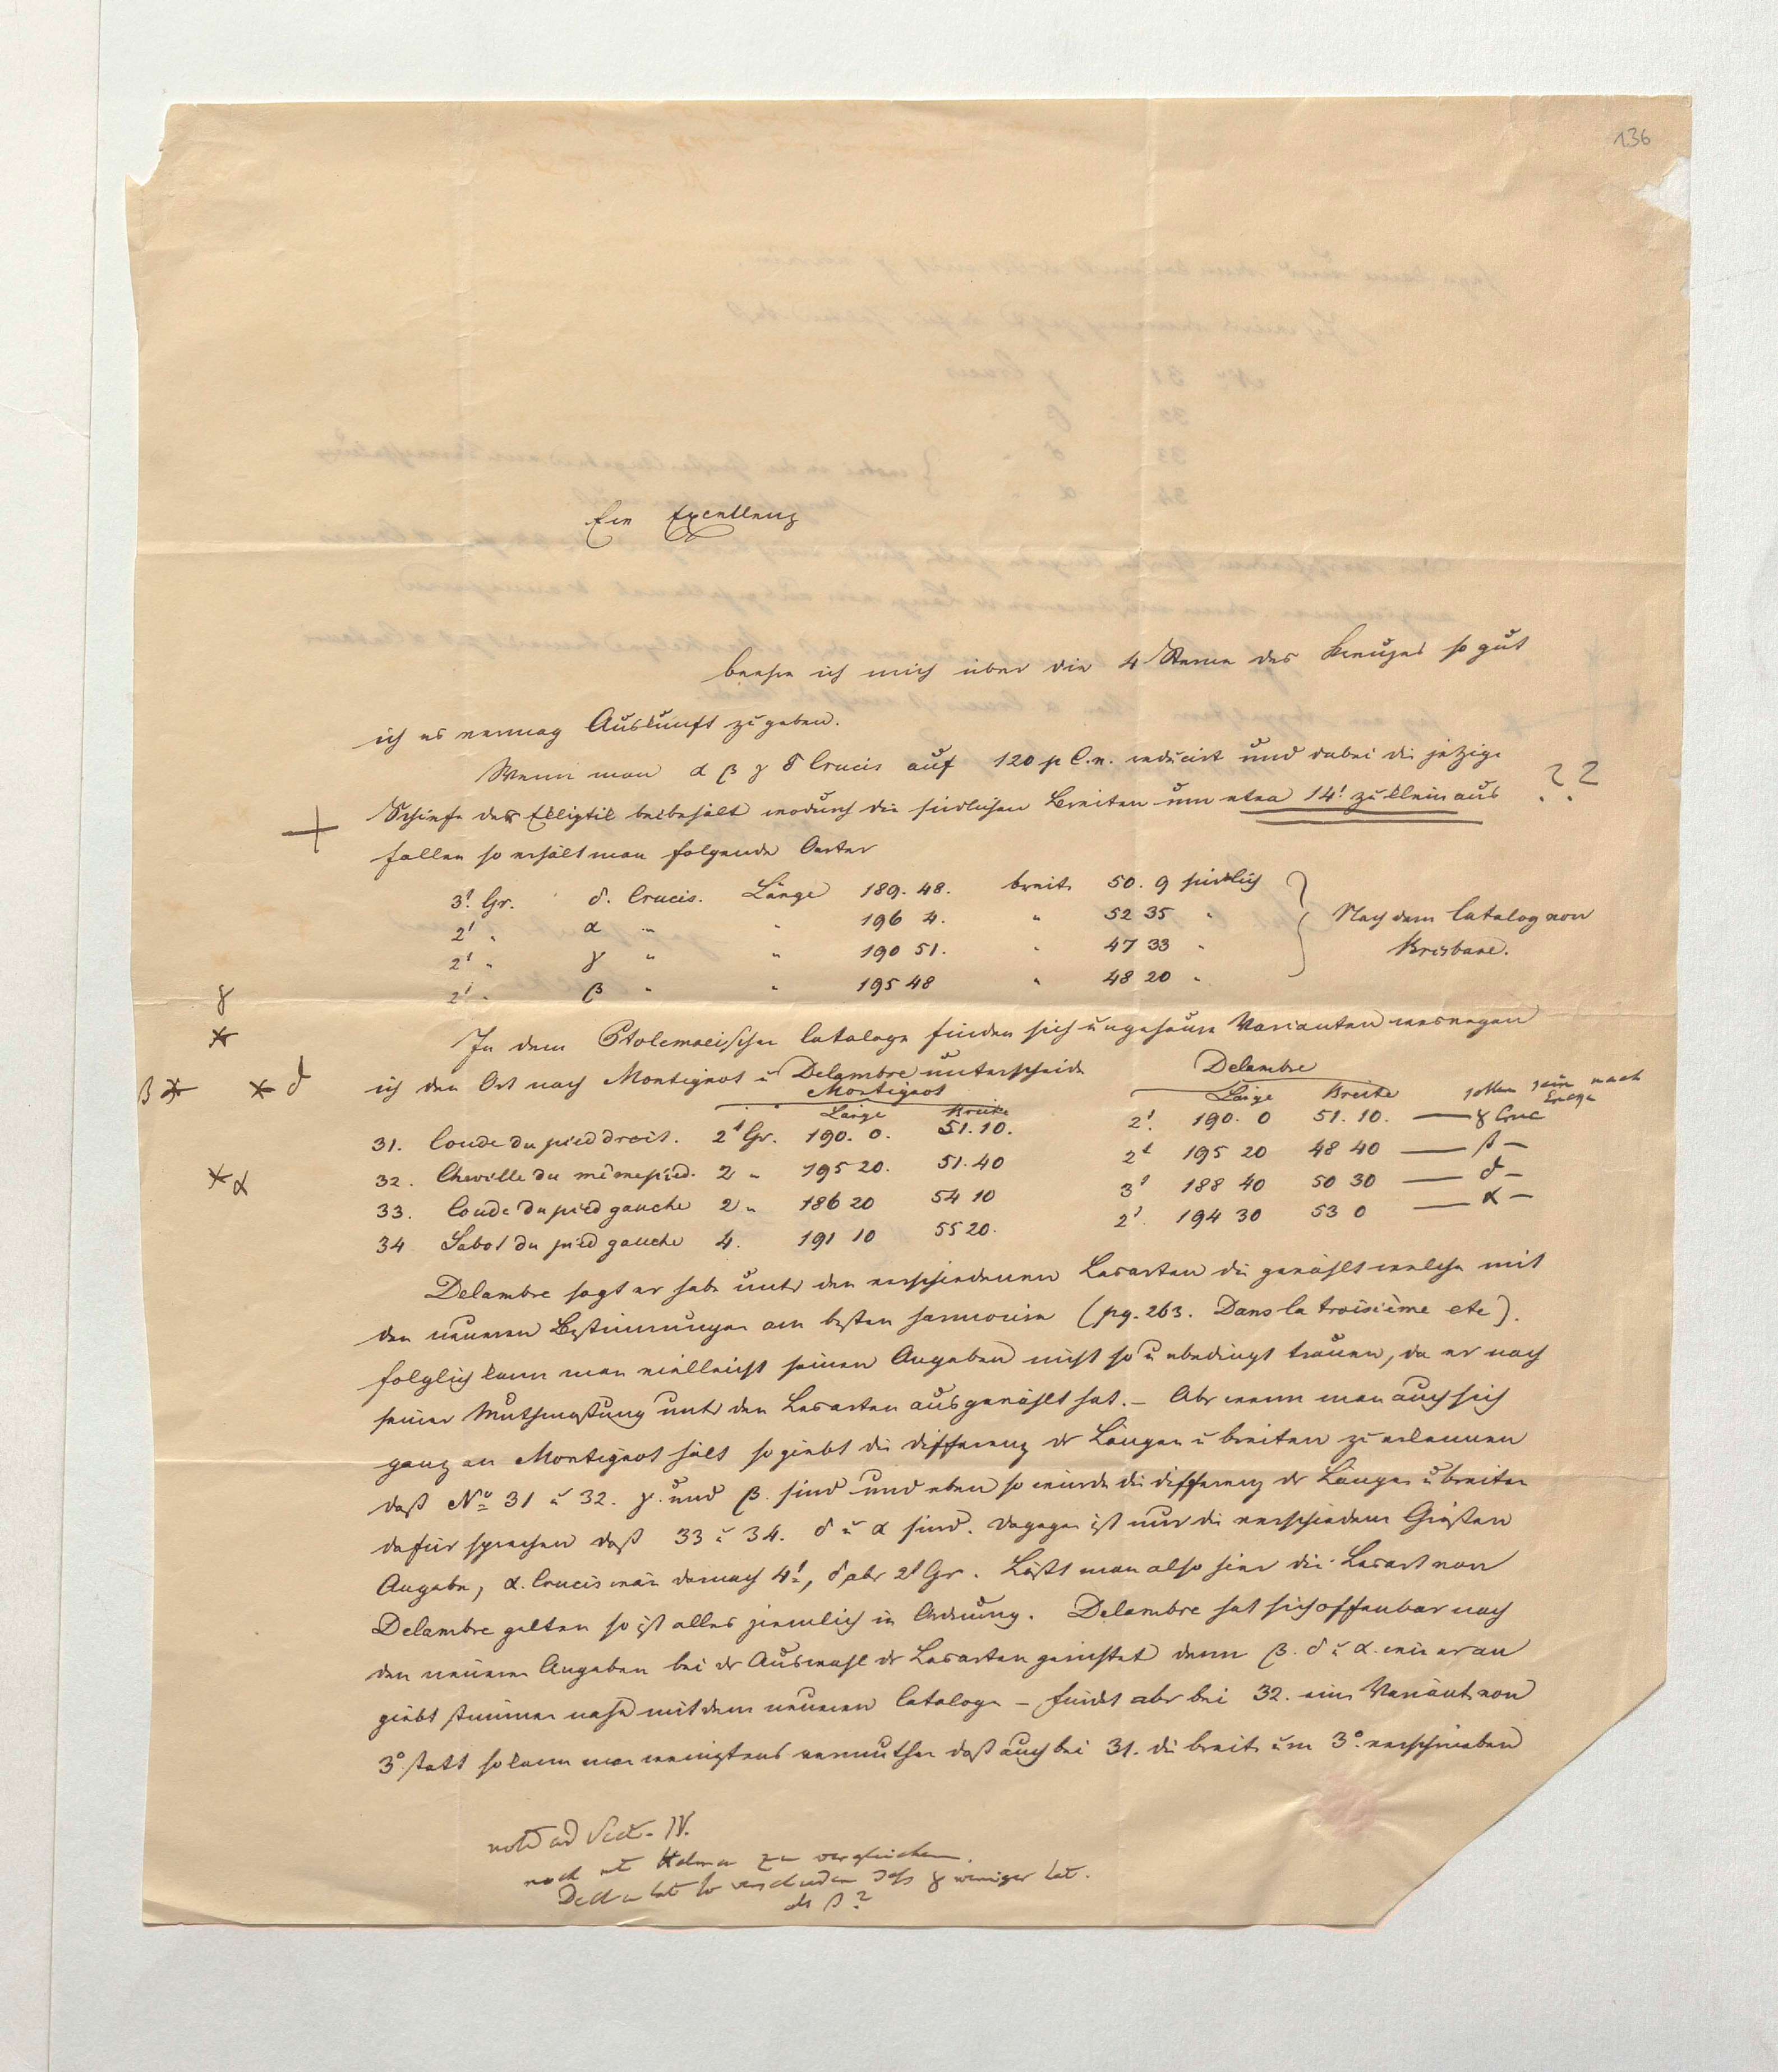 136
Eure Excellenz
beehre ich mich über die 4 Sterne des Kreuzes so gut
ich es vermag Auskunft zu geben.
Wenn man α β γ δ Crucis auf 120 p C. n. reducirt und dabei die jetzige
Schiefe der Ekliptik beibehält wodurch die südlichen Breiten um etwa 14' zu klein aus ??
+
fallen so erhält man folgende Oerter
3' Gr. δ. Crucis. Länge 189. 48. breite 50. 9 südlich
2' " α " " 196 4. " 52 35 "
Nach dem Catalog von
2' " γ " " 190 51. " 47 33 "
Brisbane.
2' " β " " 195 48 " 48 20 "
γ
*
β * * δ
* α
In dem Ptolemaeischen Cataloge finden sich ungeheure Varianten weswegen
ich den Ort nach Montignot u Delambre unterscheide
Montignot Delambre
Länge Breite Länge Breite sollen sein nach Encke
31. Coude du pied droit. 2' Gr. 190. 0. 51. 10. 2'. 190. 0 51. 10. — γ Cruc
32. Cheville du même pied. 2 " 195 20. 51. 40 2' 195 20 48 40 — β —
33. Coude du pied gauche 2 " 186 20 54 10 3' 188 40 50 30 — δ —
34 Sabot du pied gauche 4. 191 10 55 20. 2'. 194 30 53 0 — α —
Delambre sagt er habe unter den verschiedenen Lesarten die gewählt welche mit
den neueren Bestimmungen am besten harmonire (pg. 263. Dans la troisième etc).
folglich kann man vielleicht seinen Angaben nicht so unbedingt trauen, da er nach
seiner Muthmaßung unter den Lesarten ausgewählt hat. — Aber wenn man auch sich
ganz an Montignot hält so giebt die differenz der Längen u breiten zu erkennen
daß No 31 u 32. γ. und β. sind und eben so würde die differenz der Längen u breiten
dafür sprechen daß 33 u 34. δ u α sind. dagegen ist nur die verschiedene Größen
Angabe, α. Crucis wäre darnach 4', δ aber 2' Gr. Läßt man also hier die Lesart von
Delambre gelten so ist alles ziemlich in Ordnung. Delambre hat sich offenbar nach
den neueren Angaben bei der Auswahl der Lesarten gerichtet denn β. δ u α. wie er an
giebt stimmen nahe mit dem neueren Cataloge — findet aber bei 32. eine Variante von
3° statt so kann man wenigstens vermuthen daß auch bei 31. die breite um 3°. verschrieben
note ad Sect. IV.
noch mit Halma zu vergleichen.
Declin hat so verschieden dass γ weniger hat.
als β?